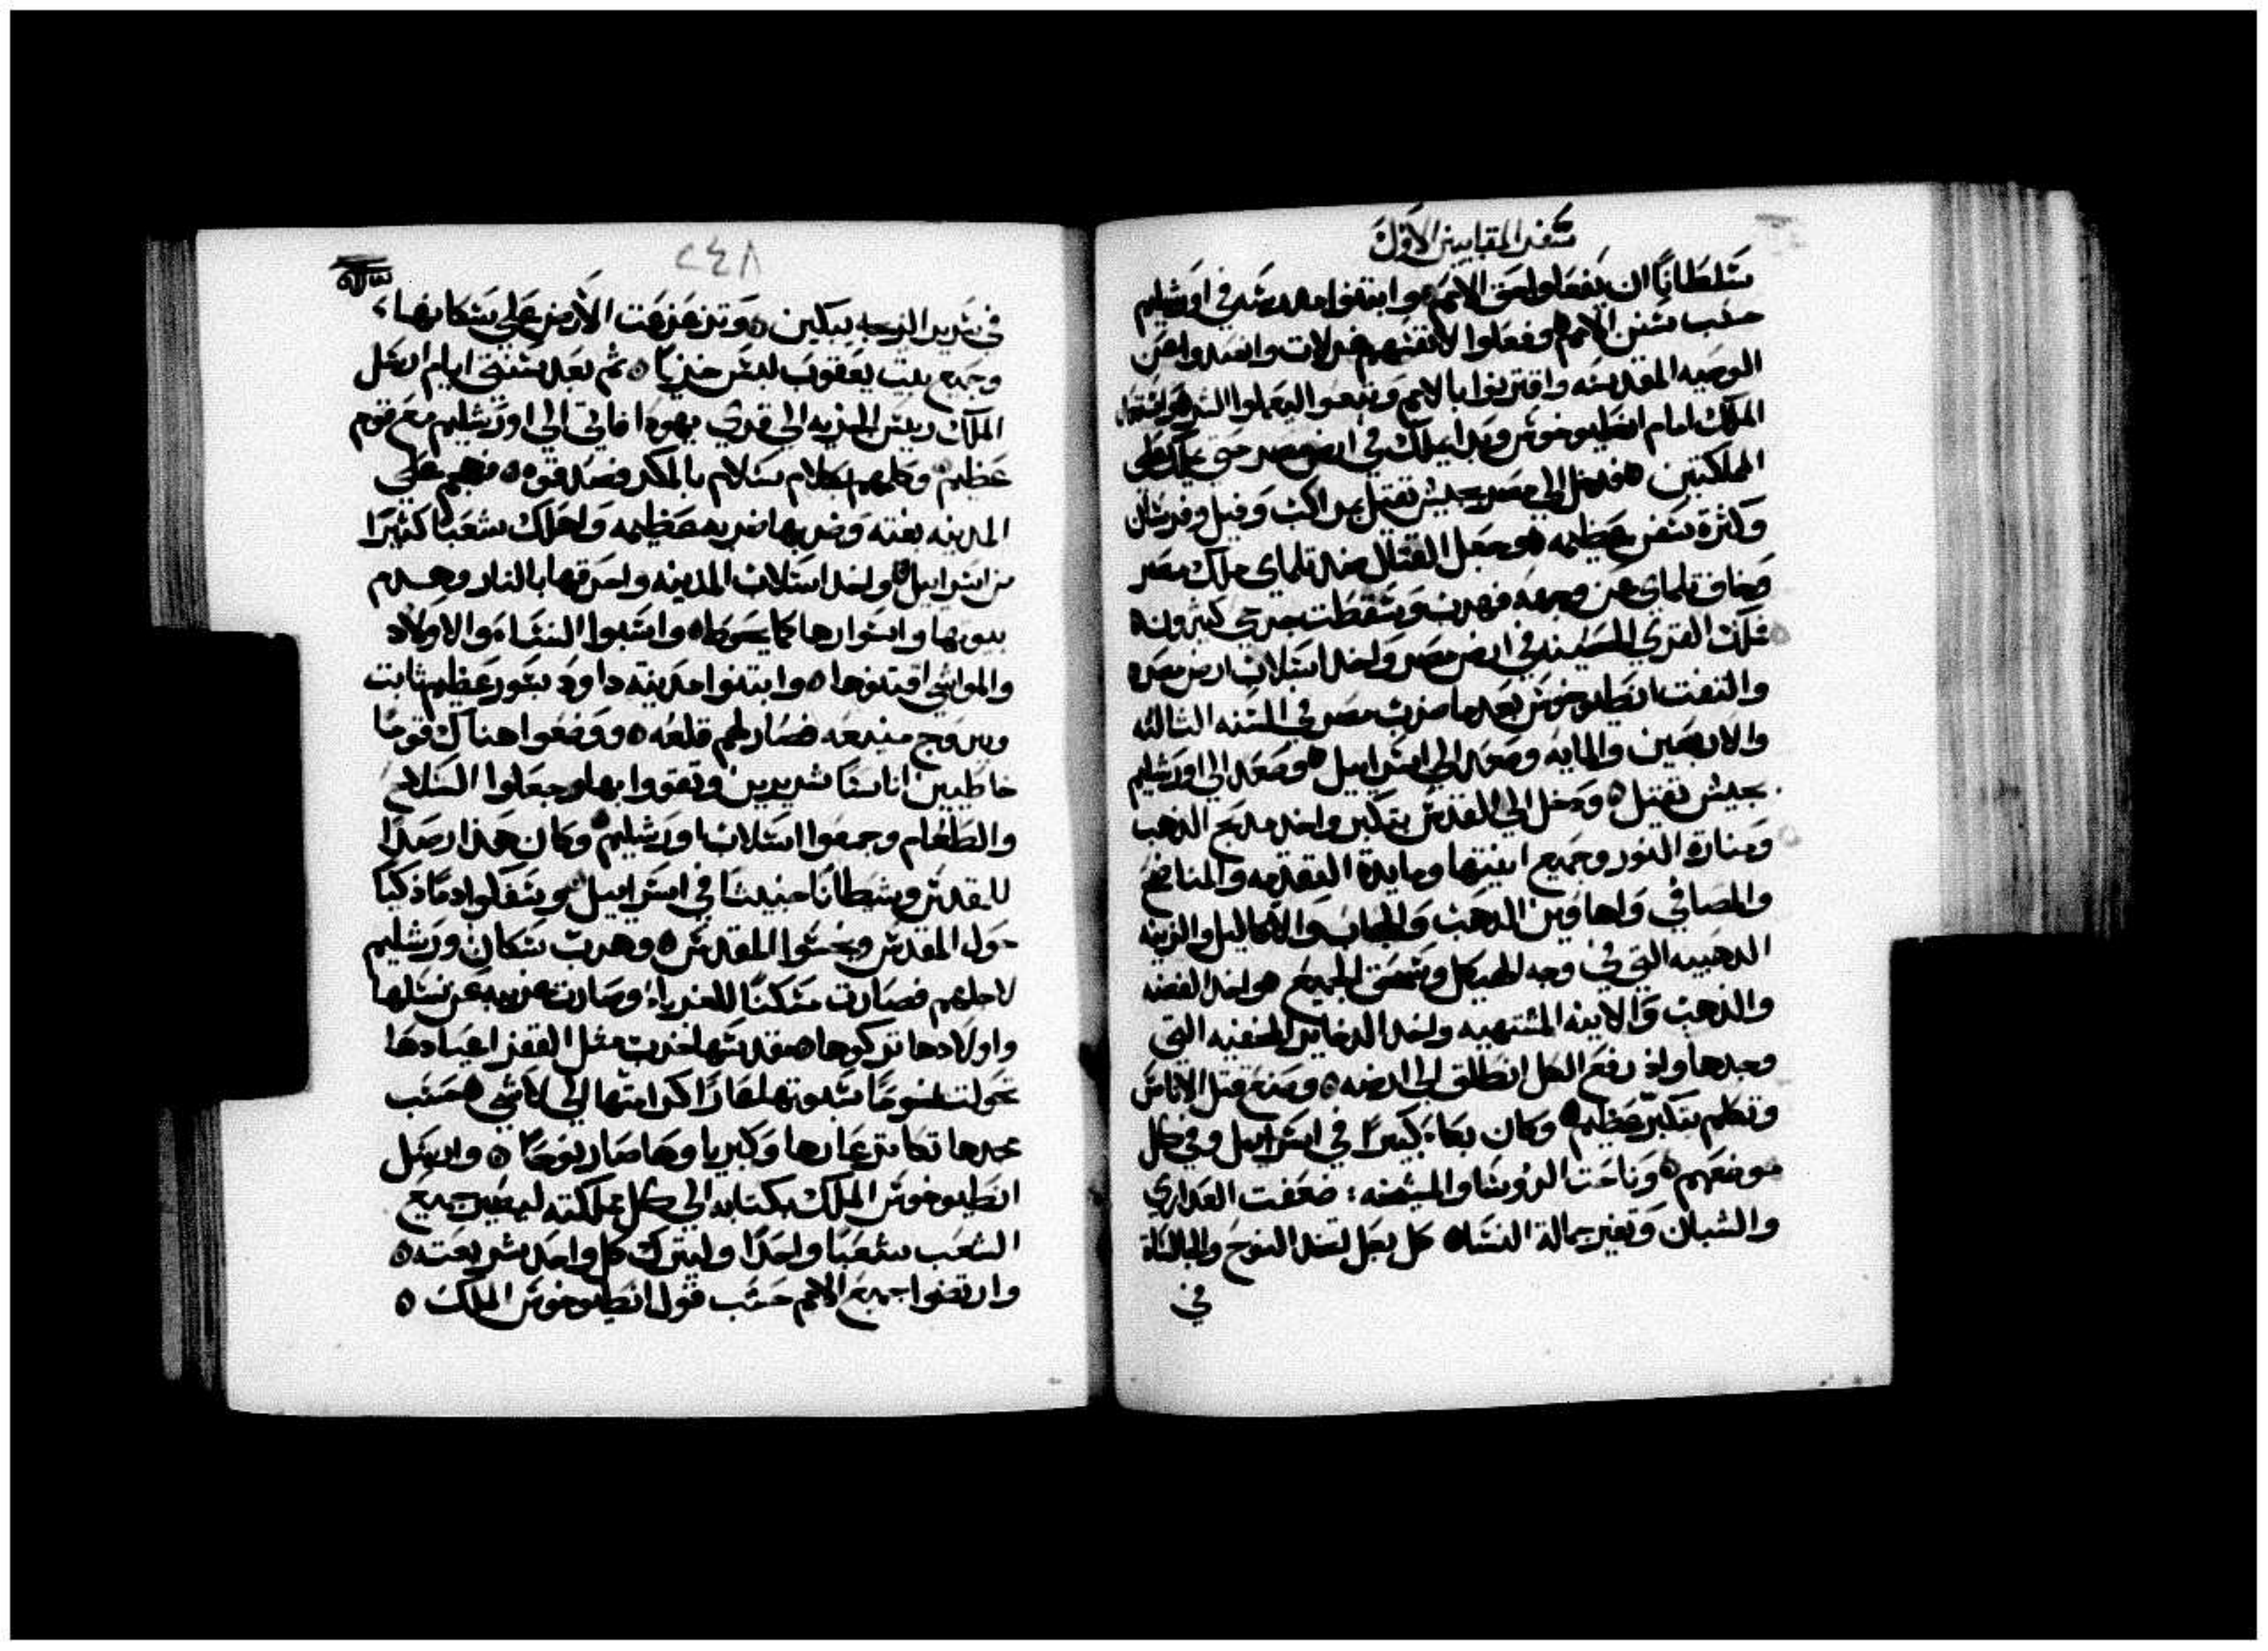 سفر المقابيين الاول
سلطانا ان يفعلوا لحق الامم ٥ وابتنوا مدرسه في اورشليم
حسب سنن الامم ٥ وفعلوا لانفسهم غرلات وابتعدوا عن
الوصيه المقدسه واقترنوا بالامم وتبعوا ليعملوا الشر ٥
الملك امام انطيوخوس وبدا يملك في ارض مصر حتى يملك على
المملكتين ٥ فدخل الى مصر بجيش ثقيل بمراكب وفيل وفرسان
وكثرة سفن عظيمه ٥ وجعل القتال ضد تلماي ملك مصر
فخاف تلماي من وجهه فهرب وسقطت جرحي كثيرون ٥
ملك القري الحصينه في ارض مصر واخذ استلاب ارض مصر ٥
والتفت انطيوخوس بعدما ضرب مصر في السنه الثالثه
والاربعين والمايه وصعد الى اسراييل ٥ وصعد الى اورشليم
بجيش ثقيل ٥ ودخل الي القدس بتكبر واخذ مدبح الدهب
ومنارة النور وجميع انيتها ومايدة التقدمه والمناضح
والمصافي واهاوين الدهب والحجاب والاكاليل والزينه
الدهبيه التي في وجه الهيكل وسحق الجميع ٥ واخذ الفضه
والذهب والانيه المشتهيه واخذ الدخاير المخفيه التي
وجدها واذ رفع الكل انطلق الى ارضه ٥ وصنع قتل الاناس
وتكلم بتكبر عظيم ٥ وكان بكاء كبيرا في اسراييل وفي كل
موضعهم ٥ وناحت الروسا والمشيخه : ضعفت العداري
والشبان وتغير جمالة النساء ٥ كل رجل اتخد النوح والجالساة
في
٢٤٨
في سرير الزيجه يبكين ٥ وتزعزعت الارض على سكانها ،
وجميع بيت يعقوب لبس خزيا ٥ ثم بعد سنتي ايام ارسل
الملك رييس الجزيه الى قري يهودا فاتي الي اورشليم مع قوم
عظيم ٥ وكلمهم بكلام سلام بالمكر فصدقوه ٥ فهجم علي
المدينه بغته وضربها ضربه عظيمه واهلك شعبا كثيرا
من اسراييل ٥ واخد استلاب المدينه واحرقها بالنار وهدم
بيوتها واسوارها كما يحوط ٥ واستبوا النساء والاولاد
والمواشي اقتنوها ٥ وابتنوا مدينة داود بسور عظيم ثابت
وبروج منيعه فصار لهم قلعه ٥ ووضعوا هناك قوما
خاطيين اناسا شريرين وتقووا بها وجعلوا السلاح
والطعام وجمعوا استلاب اورشليم ٥ وكان هذا رصدا
للمقدس وشيطانا خبيثا في اسراييل ٥ وسفكوا دما ذكيا
حول المقدس ونجسوا المقدس ٥ وهربت سكان ورشليم
لاجلهم فصارت مسكنا للغربا ، وصارت غريبه عن نسلها
واولادها تركوها ٥ مقدسها خربت مثل القفر اعيادها
تحولت نوحا سبوتها عارا كرامتها الى لا شي ٥ حسب
مجدها تكاثر عارها وكبرياوها صار نوحا ٥ وارسل
انطيوخوس الملك بكتابه الي كل مملكته ليصير جميع
الشعب شعبا واحدا وليترك كل واحد شريعته ٥
وارتضوا جميع الامم حسب قول انطيوخوس الملك ٥